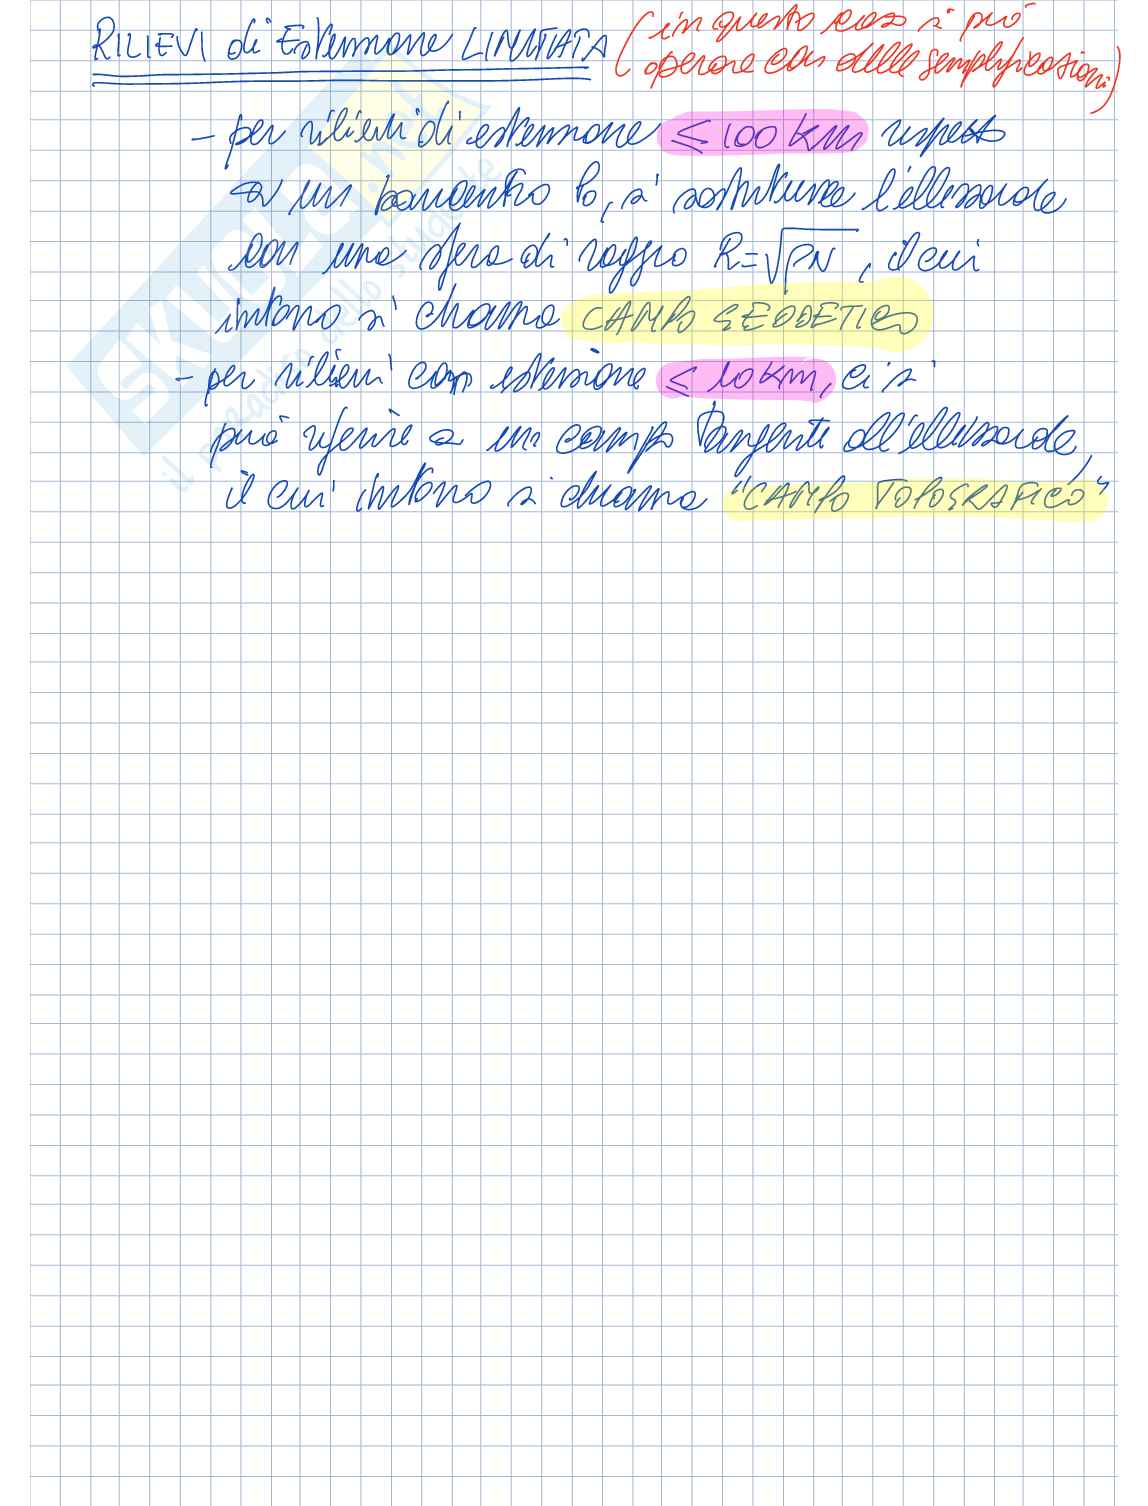 RILIEVI di Estensione LIMITATA (in questo caso si può
operare con delle semplificazioni)
- per rilievi di estensione ≤ 100 km rispetto
a un baricentro P₀, si sostituisce l'ellissoide
con una sfera di raggio R=√ρN, il cui
intorno si chiama CAMPO GEODETICO
- per rilievi con estensione ≤ 10 km, ci si
può riferire a un campo tangente all'ellissoide,
il cui intorno si chiama "CAMPO TOPOGRAFICO"